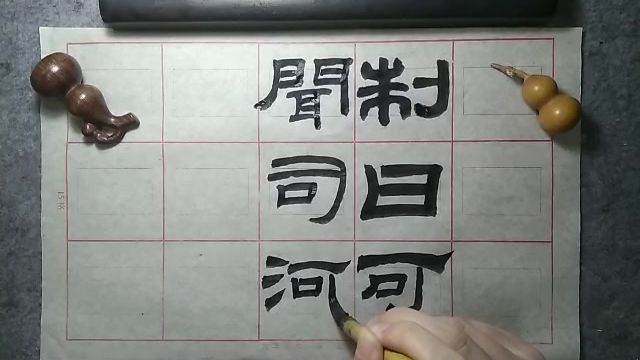 制曰可
聞司河